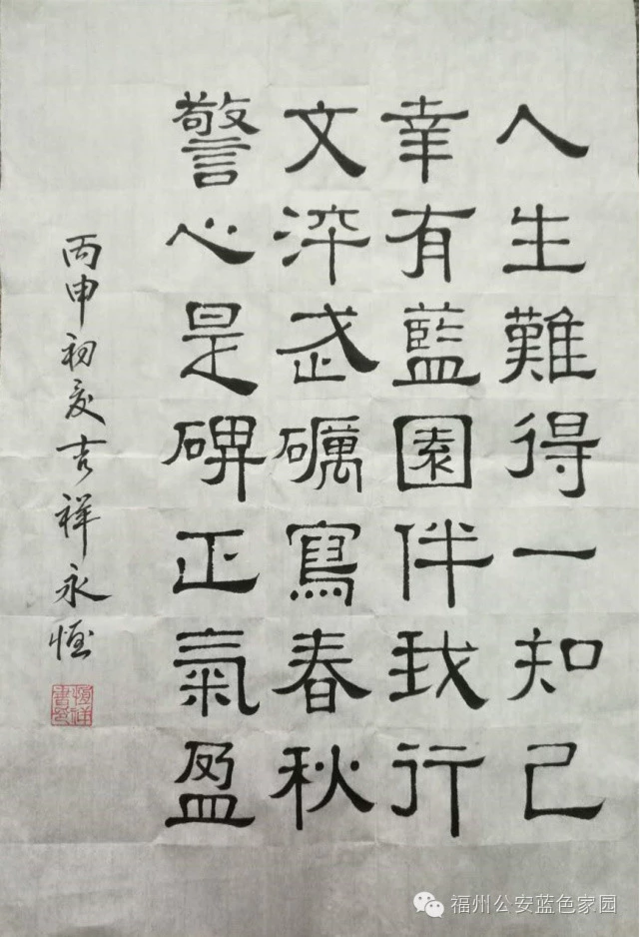 人生難得一知己
幸有藍園伴我行
文淬武礪寫春秋
警心是碑正氣盈
丙申初夏吉祥永恆
福州公安蓝色家园